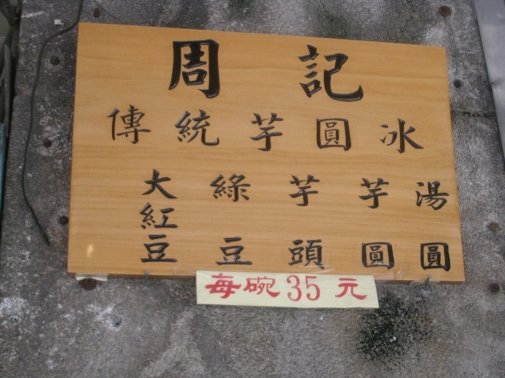 周記
傳統芋圓冰
大紅豆 綠豆 芋頭 芋圓 湯圓
每碗35元